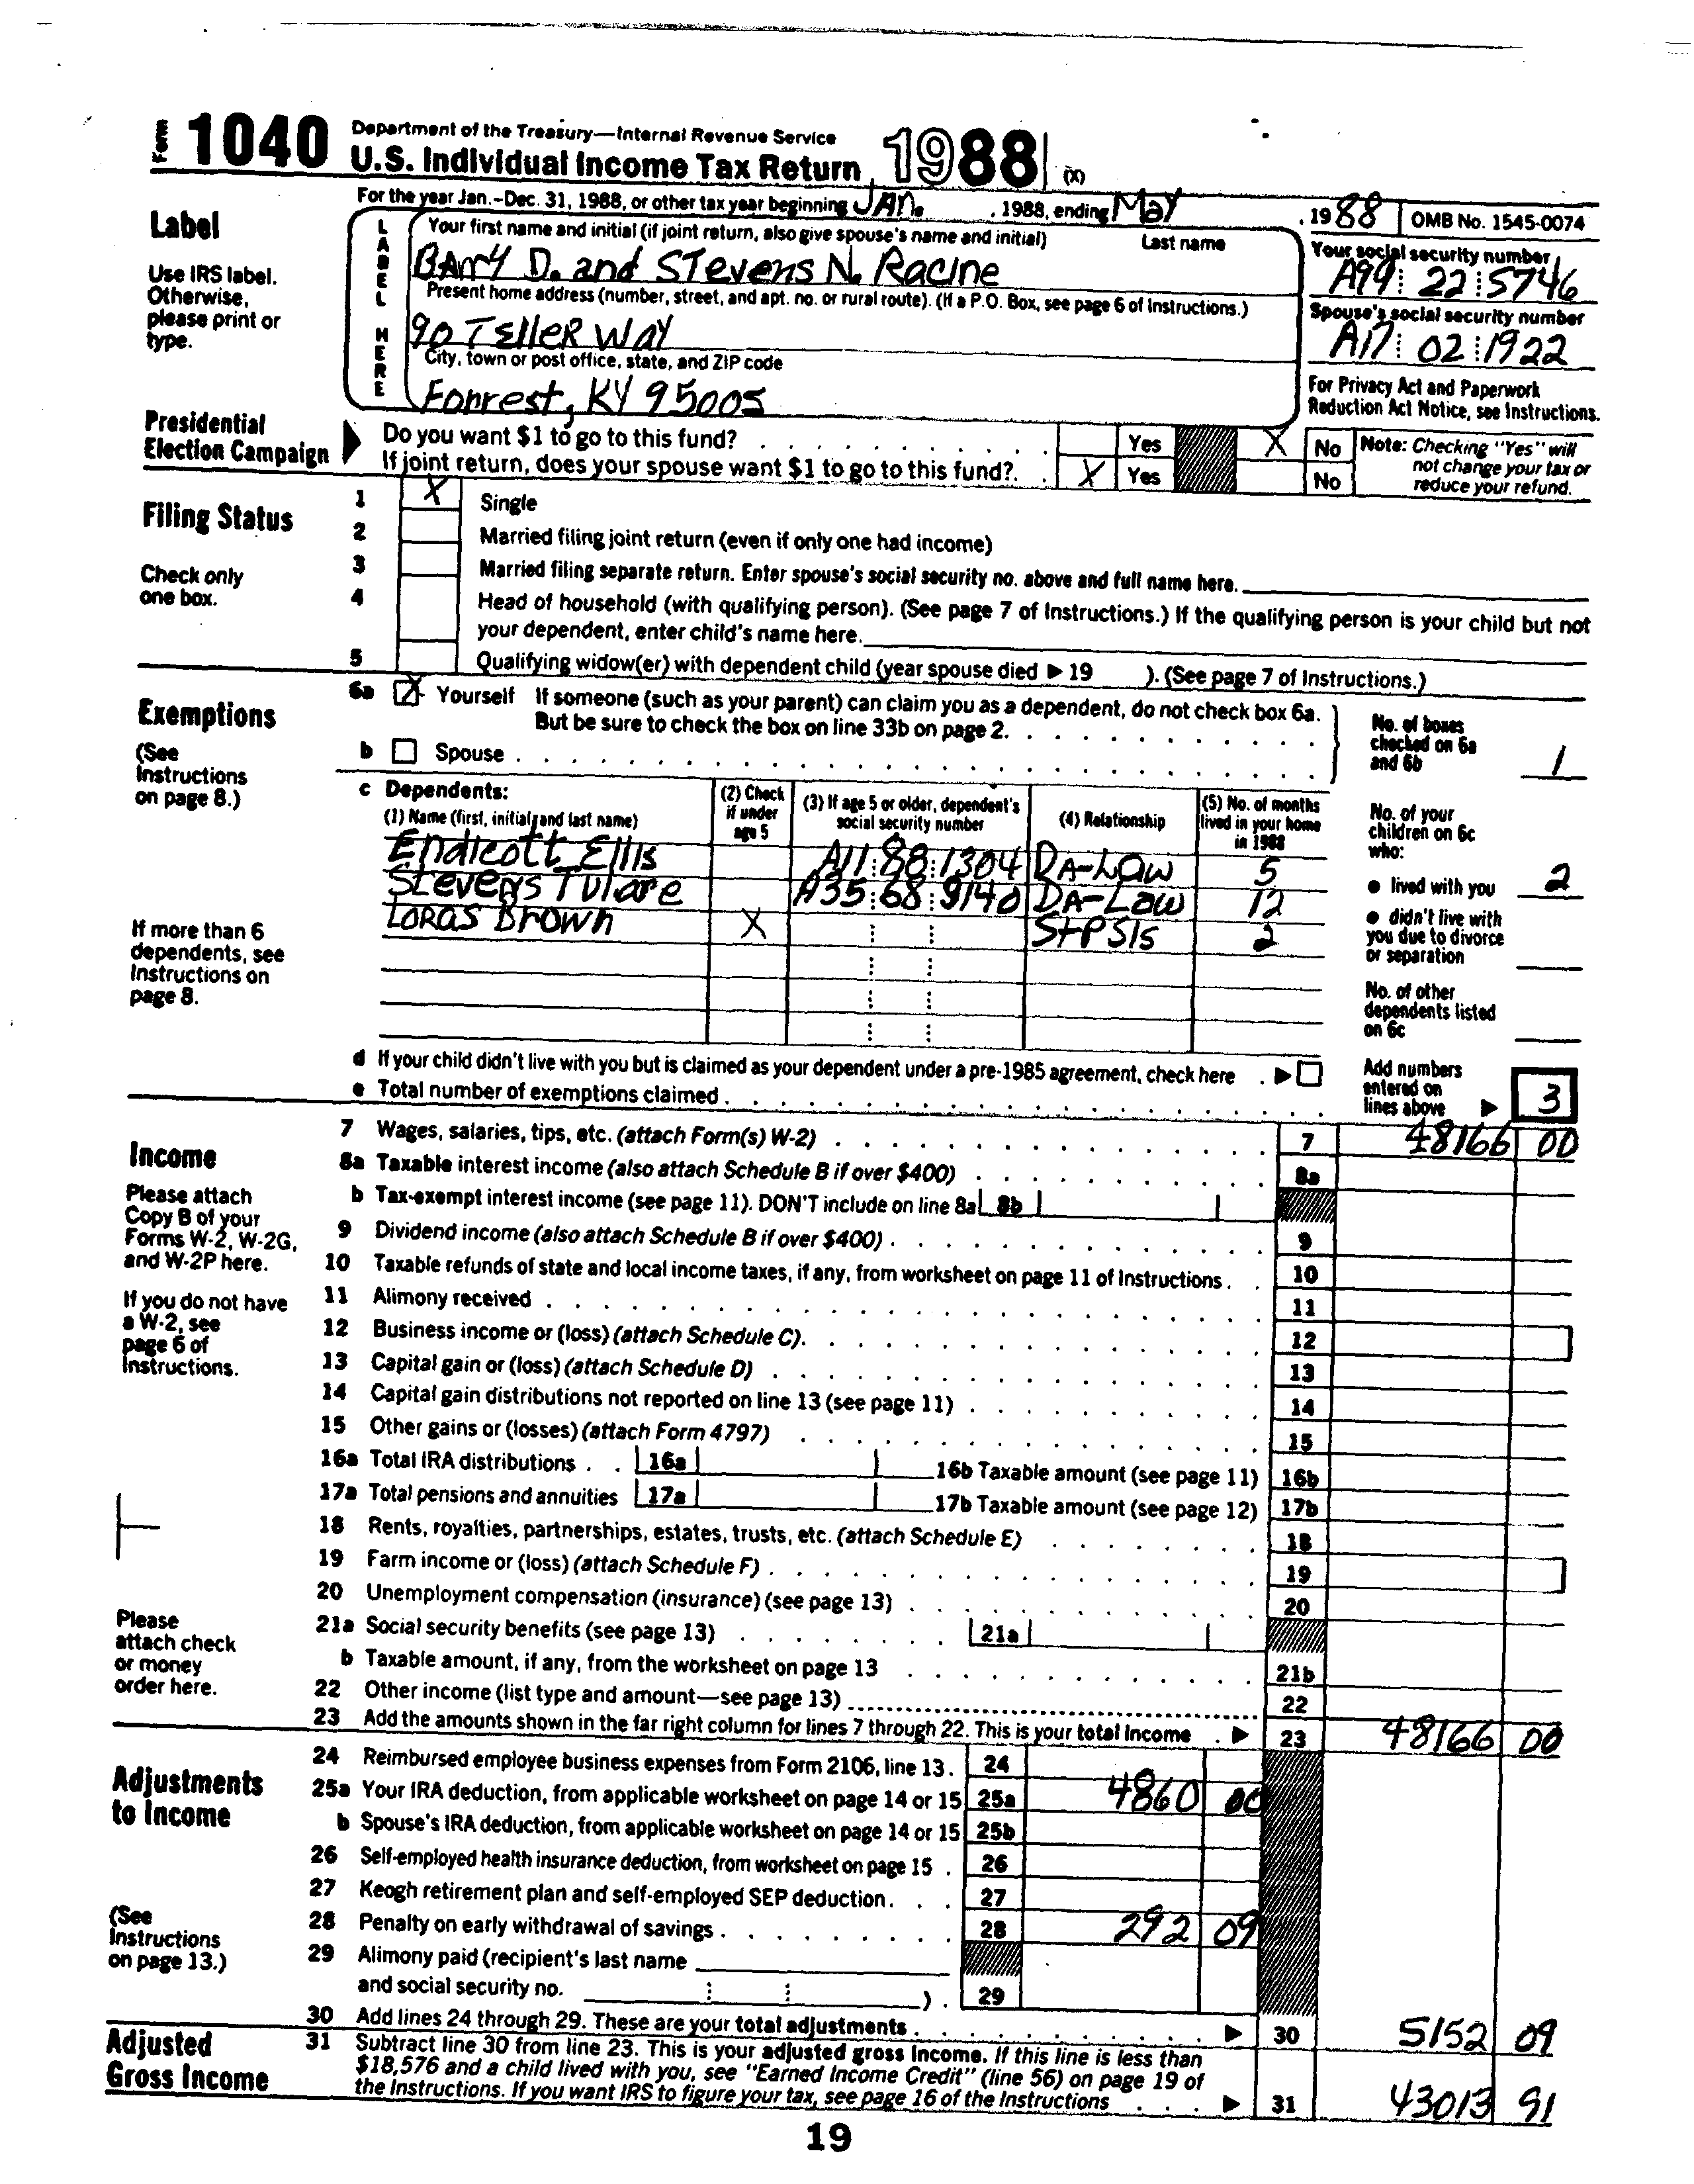 Form 1040 Department of the Treasury—Internal Revenue Service
U.S. Individual Income Tax Return 1988 (X)
For the year Jan.-Dec. 31, 1988, or other tax year beginning JAn. , 1988, ending May , 19 88 OMB No. 1545-0074
Label
Use IRS label.
Otherwise,
please print or
type.
LABEL HERE
Your first name and initial (if joint return, also give spouse's name and initial) Last name
BArry D. and STevens N. Racine
Your social security number
A99 22 5746
Present home address (number, street, and apt. no. or rural route). (If a P.O. Box, see page 6 of Instructions.)
90 TElleR Way
Spouse's social security number
A17 02 1922
City, town or post office, state, and ZIP code
Forrest, KY 95005
For Privacy Act and Paperwork
Reduction Act Notice, see Instructions.
Presidential
Election Campaign
Do you want $1 to go to this fund? Yes X No
If joint return, does your spouse want $1 to go to this fund? X Yes No
Note: Checking "Yes" will
not change your tax or
reduce your refund.
Filing Status
Check only
one box.
1 X Single
2 Married filing joint return (even if only one had income)
3 Married filing separate return. Enter spouse's social security no. above and full name here.
4 Head of household (with qualifying person). (See page 7 of Instructions.) If the qualifying person is your child but not
your dependent, enter child's name here.
5 Qualifying widow(er) with dependent child (year spouse died ▶ 19 ). (See page 7 of Instructions.)
Exemptions
(See
Instructions
on page 8.)
6a X Yourself If someone (such as your parent) can claim you as a dependent, do not check box 6a.
But be sure to check the box on line 33b on page 2.
b Spouse
No. of boxes
checked on 6a
and 6b 1
c Dependents:
(1) Name (first, initial, and last name)
(2) Check
if under
age 5
(3) If age 5 or older, dependent's
social security number
(4) Relationship
(5) No. of months
lived in your home
in 1988
Endicott Ellis A11 88 1304 DA-Law 5
Stevens Tulare A35 68 9140 DA-Law 12
Loras Brown X StPSIs 2
If more than 6
dependents, see
Instructions on
page 8.
No. of your
children on 6c
who:
● lived with you 2
● didn't live with
you due to divorce
or separation
No. of other
dependents listed
on 6c
d If your child didn't live with you but is claimed as your dependent under a pre-1985 agreement, check here ▶
e Total number of exemptions claimed
Add numbers
entered on
lines above ▶ 3
Income
Please attach
Copy B of your
Forms W-2, W-2G,
and W-2P here.
If you do not have
a W-2, see
page 6 of
Instructions.
Please
attach check
or money
order here.
7 Wages, salaries, tips, etc. (attach Form(s) W-2) 7 48166 00
8a Taxable interest income (also attach Schedule B if over $400) 8a
b Tax-exempt interest income (see page 11). DON'T include on line 8a 8b
9 Dividend income (also attach Schedule B if over $400) 9
10 Taxable refunds of state and local income taxes, if any, from worksheet on page 11 of Instructions 10
11 Alimony received 11
12 Business income or (loss) (attach Schedule C) 12
13 Capital gain or (loss) (attach Schedule D) 13
14 Capital gain distributions not reported on line 13 (see page 11) 14
15 Other gains or (losses) (attach Form 4797) 15
16a Total IRA distributions 16a 16b Taxable amount (see page 11) 16b
17a Total pensions and annuities 17a 17b Taxable amount (see page 12) 17b
18 Rents, royalties, partnerships, estates, trusts, etc. (attach Schedule E) 18
19 Farm income or (loss) (attach Schedule F) 19
20 Unemployment compensation (insurance) (see page 13) 20
21a Social security benefits (see page 13) 21a
b Taxable amount, if any, from the worksheet on page 13 21b
22 Other income (list type and amount—see page 13) 22
23 Add the amounts shown in the far right column for lines 7 through 22. This is your total income ▶ 23 48166 00
Adjustments
to Income
(See
Instructions
on page 13.)
24 Reimbursed employee business expenses from Form 2106, line 13. 24
25a Your IRA deduction, from applicable worksheet on page 14 or 15 25a 4860 00
b Spouse's IRA deduction, from applicable worksheet on page 14 or 15 25b
26 Self-employed health insurance deduction, from worksheet on page 15 26
27 Keogh retirement plan and self-employed SEP deduction 27
28 Penalty on early withdrawal of savings 28 292 09
29 Alimony paid (recipient's last name
and social security no. ). 29
30 Add lines 24 through 29. These are your total adjustments ▶ 30 5152 09
Adjusted
Gross Income
31 Subtract line 30 from line 23. This is your adjusted gross income. If this line is less than
$18,576 and a child lived with you, see "Earned Income Credit" (line 56) on page 19 of
the Instructions. If you want IRS to figure your tax, see page 16 of the Instructions ▶ 31 43013 91
19